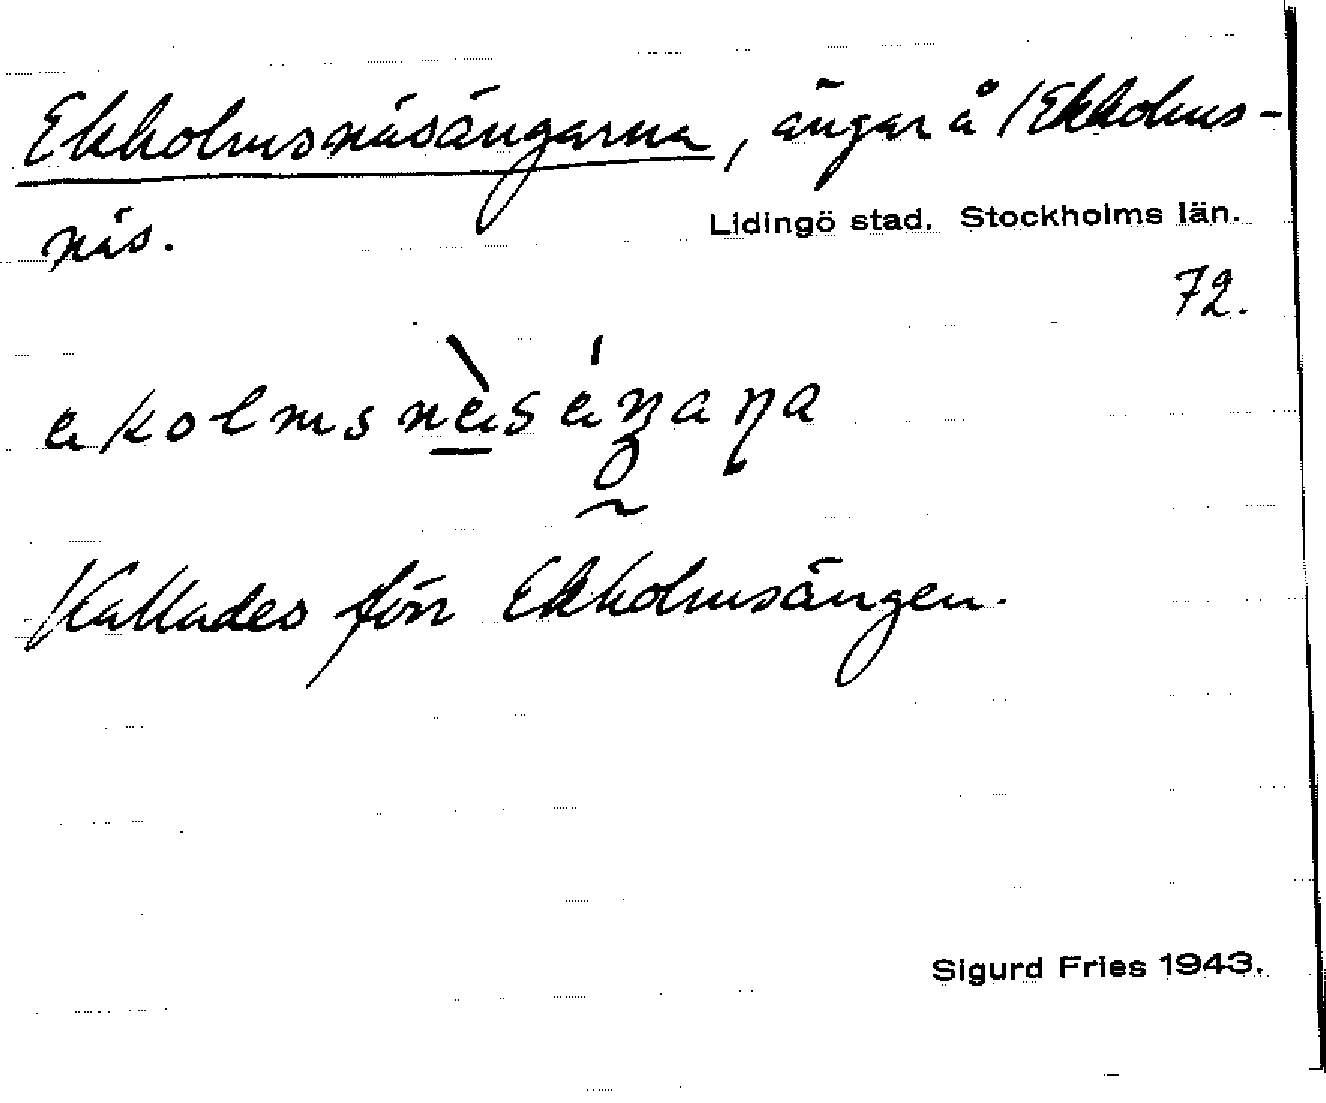 Ekholmsnäsängarna, ängar å Ekholms-
näs.
Lidingö stad. Stockholms län.
72.
Kallades förr Ekholmsängen.
Sigurd Fries 1943.